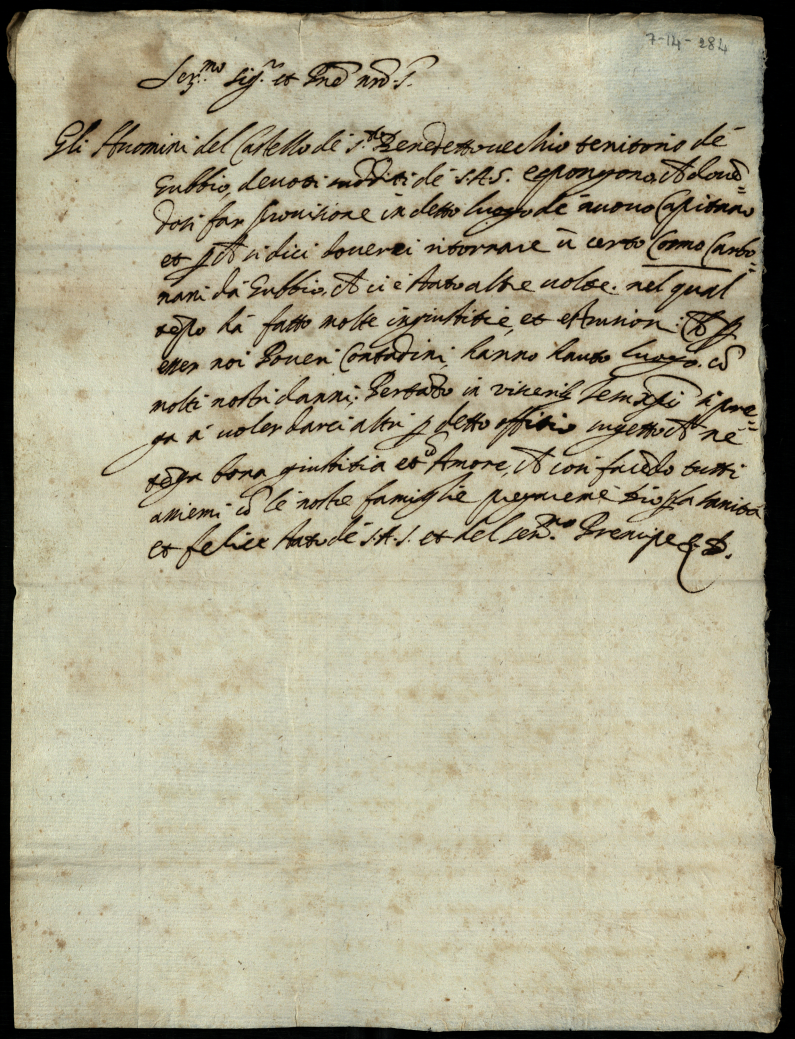 7-14-284
Ser.mo Sig.r et Prõe nrõ S.
Gli Huomini del Castello de S.to Benedetto vecchio teritorio de
Eubbio, devoti sudditi de S.A.S. espongono, ch dovẽ=
dosi far provisione in detto luogo de nuovo Capitano
et p ch si dici doverci ritornare ũ certo Cosmo Carbo=
nani da Eubbio, ch ci è stato altre volte. nel qual
tẽpo hà fatto molte ingiustitie, et estrusioni: ch p
esser noi Poveri Contadini, hanno hauto luogo. cõ
molti nostri danni; Pertãto in visceribs si pre=
ga à voler darci altri p detto offitio sugetto, ch ne
tẽga bona giustitia et Amore, ch cosi facẽdo tutti
assiemi cõ le nostre famiglie pregaremé Dio p la sanità
et felice stato de S.A.S. et del ser.mo Prencipe